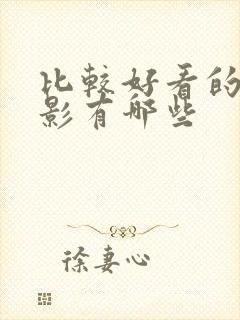 比較好看的
影有哪些
徐妻心